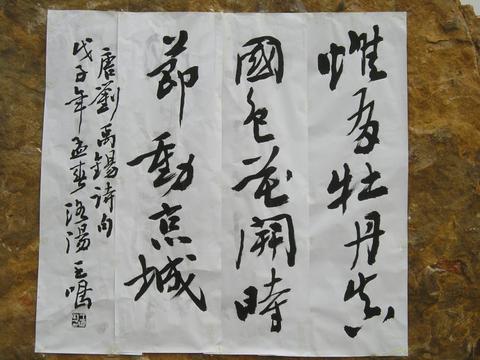 惟有牡丹真
國色花開時
節動京城
唐劉禹錫詩句
戊子年孟春洛陽王